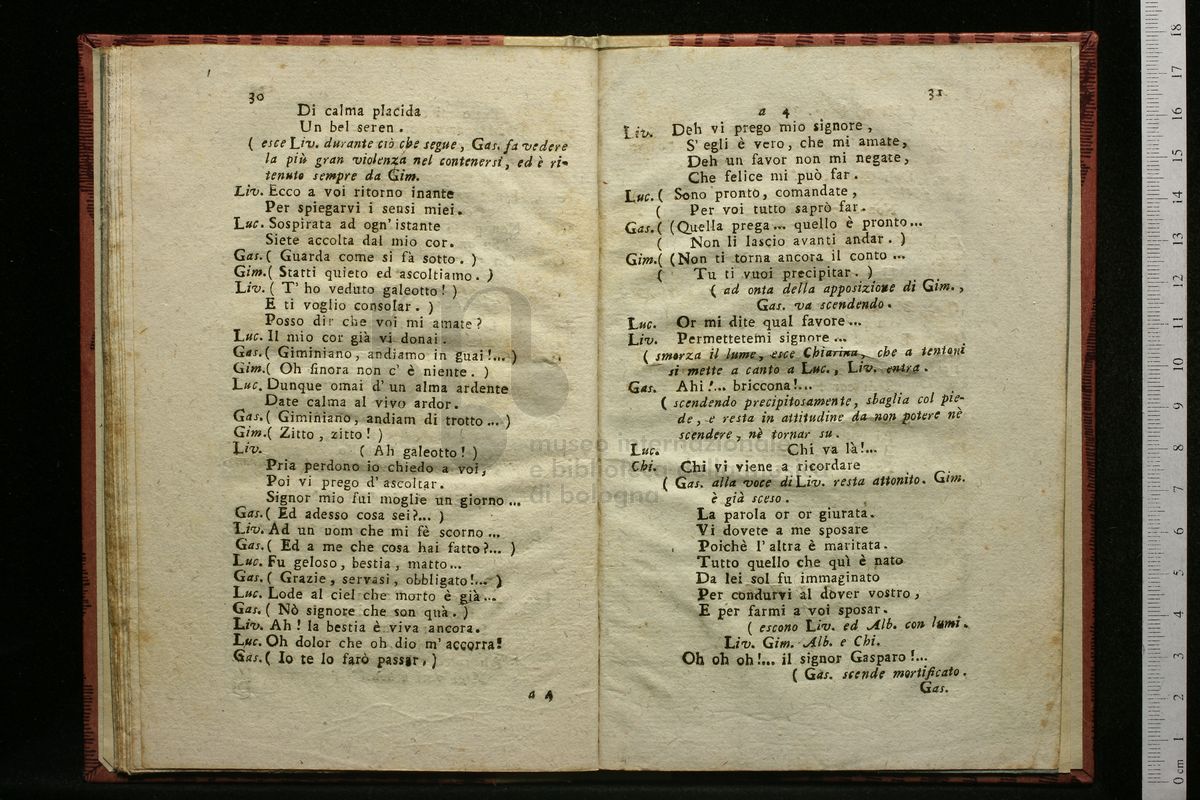 30
Di calma placida
Un bel seren .
( esce Liv. durante ciò che segue, Gas. fa vedere
la più gran violenza nel contenersi, ed è ri-
tenuto sempre da Gim.
Liv. Ecco a voi ritorno inante
Per spiegarvi i sensi miei.
Luc. Sospirata ad ogn' istante
Siete accolta dal mio cor.
Gas. ( Guarda come si fà sotto . )
Gim. ( Statti quieto ed ascoltiamo. )
Liv. ( T' ho veduto galeotto ! )
E ti voglio consolar . )
Posso dir che voi mi amate ?
Luc. Il mio cor già vi donai .
Gas. ( Giminiano, andiamo in guai !... )
Gim. ( Oh finora non c' è niente . )
Luc. Dunque omai d' un alma ardente
Date calma al vivo ardor.
Gas. ( Giminiano, andiam di trotto ... )
Gim. ( Zitto , zitto ! )
Liv. ( Ah galeotto ! )
Pria perdono io chiedo a voi,
Poi vi prego d' ascoltar.
Signor mio fui moglie un giorno ...
Gas. ( Ed adesso cosa sei ?... )
Liv. Ad un uom che mi fè scorno ...
Gas. ( Ed a me che cosa hai fatto ?... )
Luc. Fu geloso, bestia, matto ...
Gas. ( Grazie, servasi, obbligato !... )
Luc. Lode al ciel che morto è già ...
Gas. ( Nò signore che son quà . )
Liv. Ah ! la bestia è viva ancora.
Luc. Oh dolor che oh dio m' accorra!
Gas. ( Io te lo farò passar, )
a 4
31
a 4
Liv. Deh vi prego mio signore,
S' egli è vero, che mi amate,
Deh un favor non mi negate,
Che felice mi può far.
Luc. ( Sono pronto, comandate ,
( Per voi tutto saprò far.
Gas. ( (Quella prega ... quello è pronto ...
( Non li lascio avanti andar . )
Gim. ( (Non ti torna ancora il conto ...
( Tu ti vuoi precipitar. )
( ad onta della apposizione di Gim.,
Gas. va scendendo .
Luc. Or mi dite qual favore ...
Liv. Permettetemi signore ...
( smorza il lume, esce Chiarina, che a tentoni
si mette a canto a Luc., Liv. entra .
Gas. Ahi !... briccona !...
( scendendo precipitosamente, sbaglia col pie-
de, e resta in attitudine da non potere nè
scendere, nè tornar su.
Luc. Chi va là !...
Chi. Chi vi viene a ricordare
( Gas. alla voce di Liv. resta attonito. Gim.
è già sceso .
La parola or or giurata.
Vi dovete a me sposare
Poichè l' altra è maritata.
Tutto quello che quì è nato
Da lei sol fu immaginato
Per condurvi al dover vostro ,
E per farmi a voi sposar.
( escono Liv. ed Alb. con lumi.
Liv. Gim. Alb. e Chi.
Oh oh oh !... il signor Gasparo !...
( Gas. scende mortificato .
Gas.
museo internazionale
e biblioteca
di bologna
0 cm 1 2 3 4 5 6 7 8 9 10 11 12 13 14 15 16 17 18